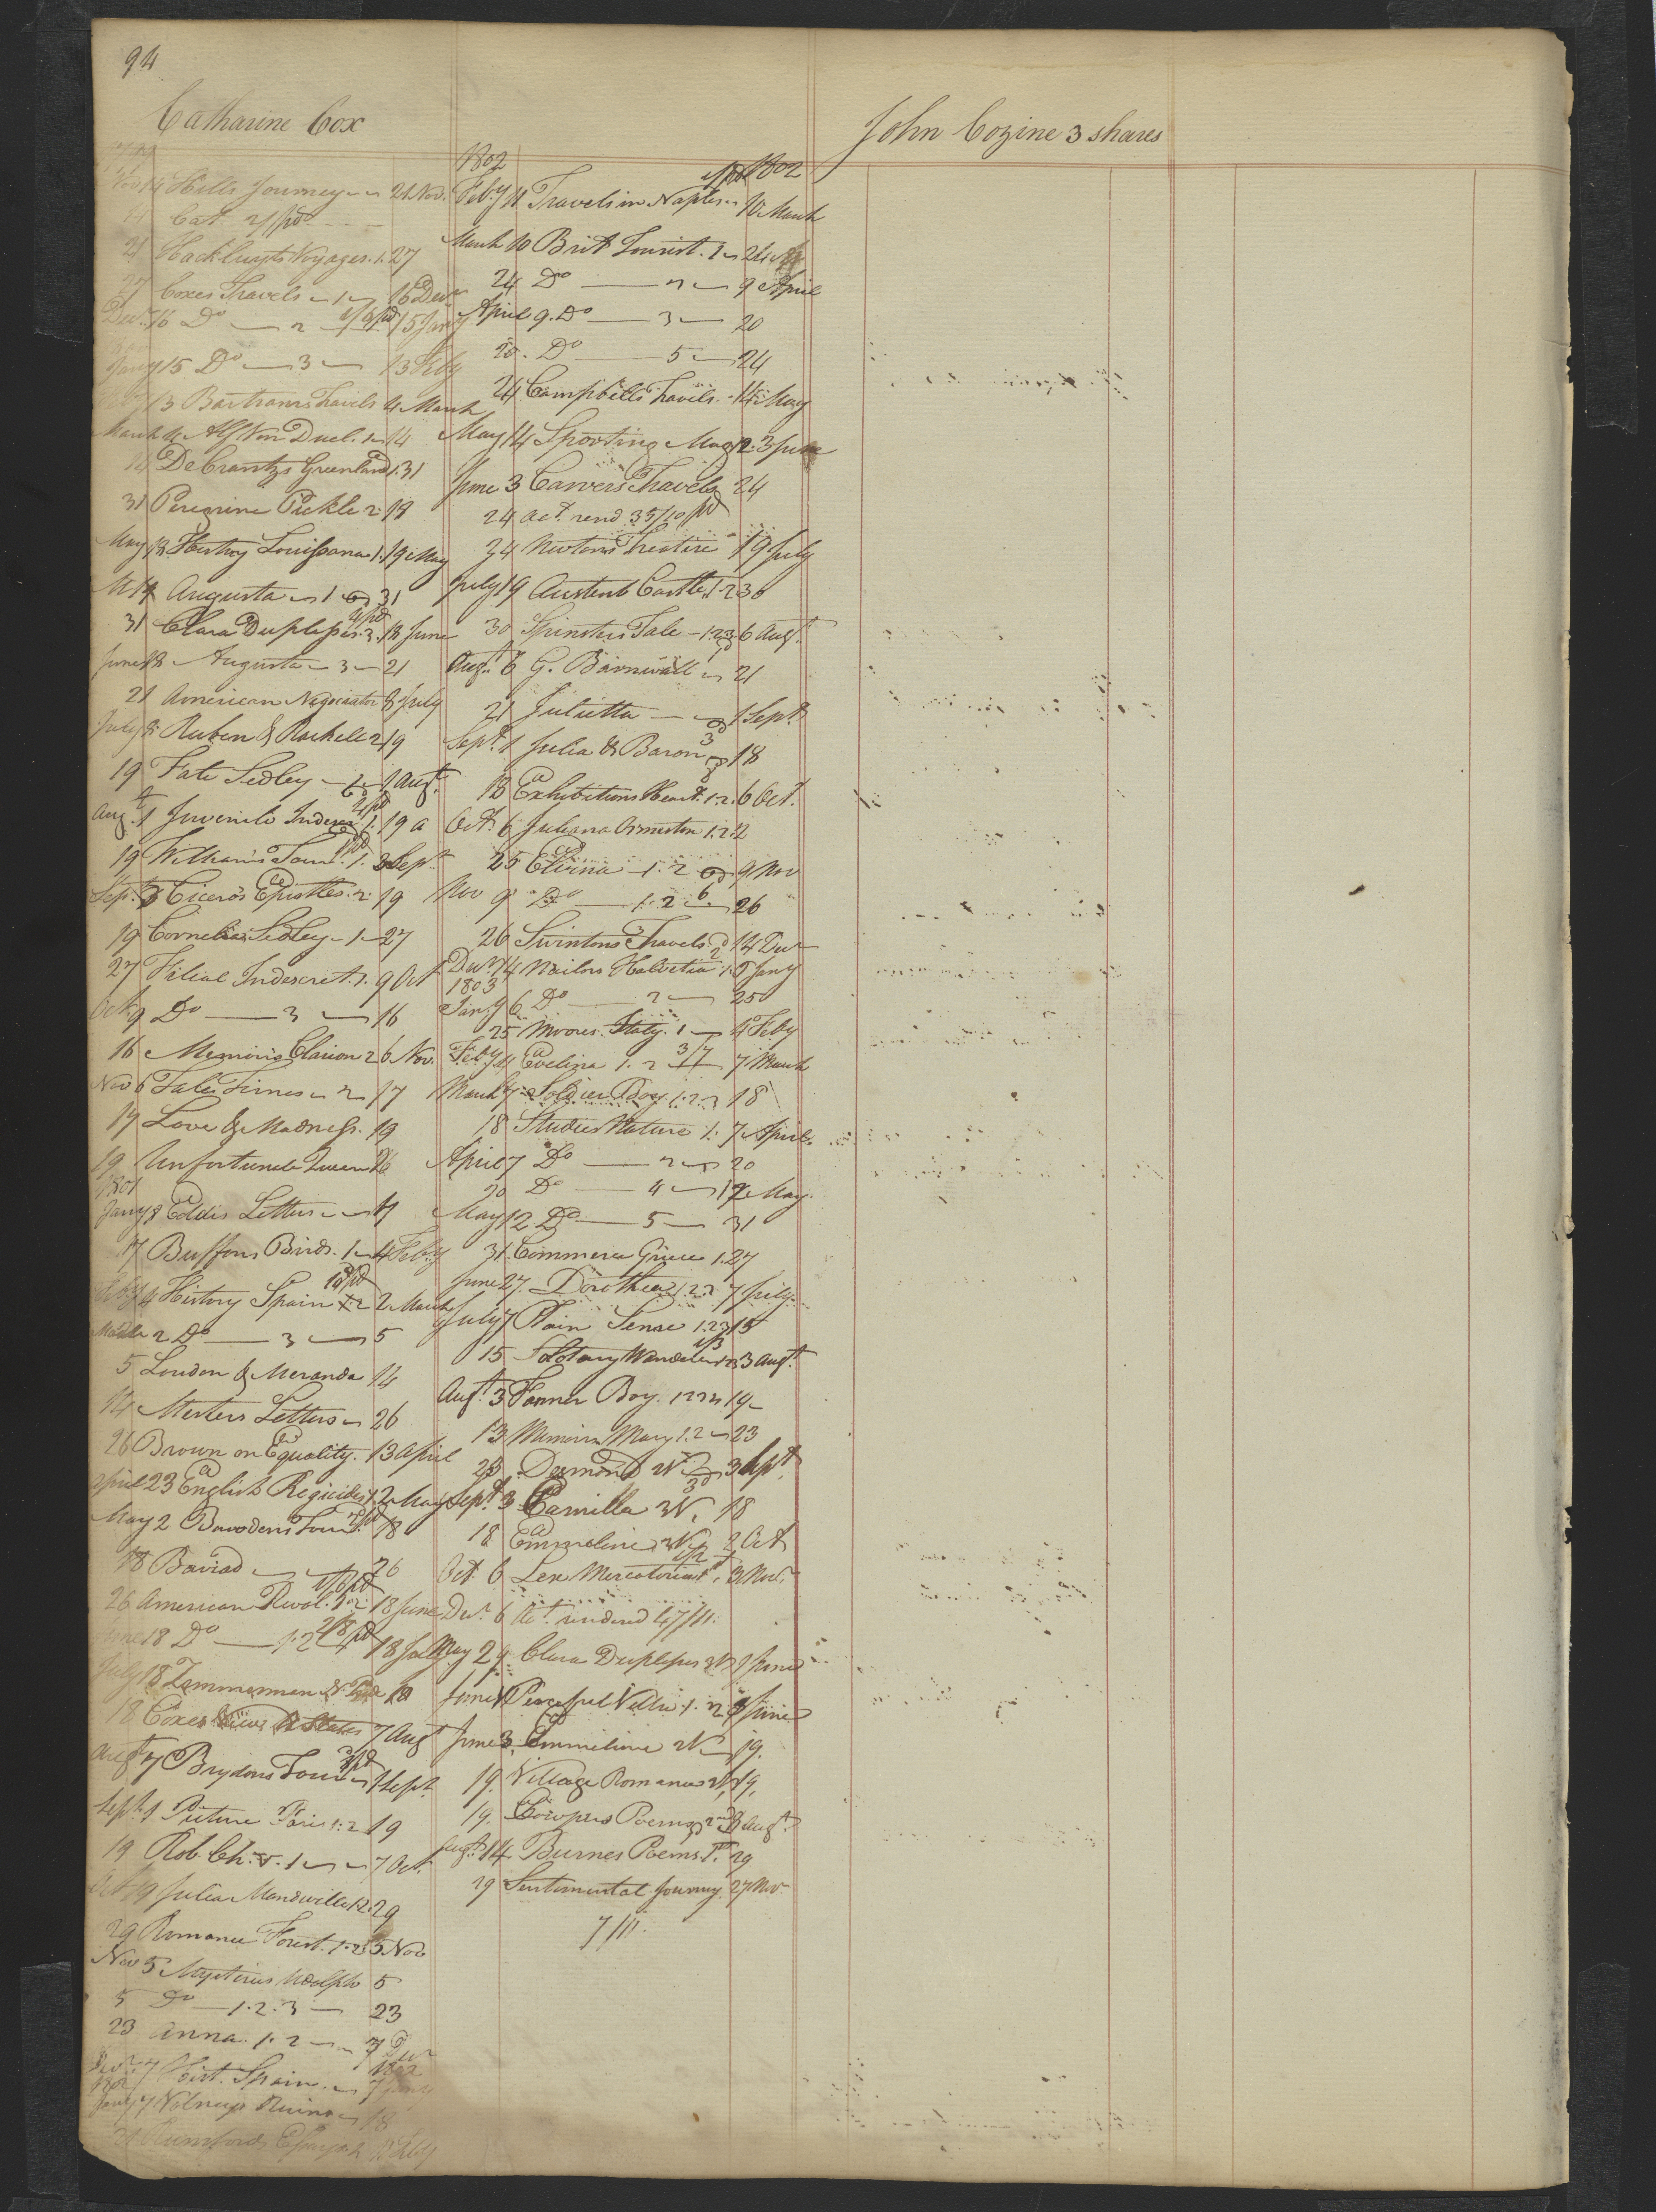 94
Catharine Cox
Nov 14 Hills Journey 21 Nov.
Cat. 2/ pd
21 Hackluyts Voyages. 1. 27
27 Coxes Travels 1 16 Decr
Decr 16 Do 2 1/6 pd 15 Jany
Jany 15 Do 3 13 Feby
13 Bartrams Travels 4 March
March 4 Alf Von Duel. 14
14 DeCrantzs Greenland 1. 31
31 Peregrine Pickle 2 18
May 18 History Louissana 1. 19 May
19 Augusta 1 31
31 Clara Duplessis. 3. 18 June
June 18 Augusta 3 21
21 American Negociator 8 July
July 8 Ruben & Rachell 2 19
19 Fate Sedley 1 Augt
Augt 1 Juvenile Indescr. 1. 19 a
19 Williams Tour. 1. Sept
Sept. 3 Ciceros Epistles. 2. 19
19 Cornelia Sedley 1 27
27 Filial Indescret. 1. 9 Oct
Oct. 9 Do 3 16
16 Memoirs Clarion 2 6 Nov.
Nov 6 Tales Times 2 17
17 Love & Madness. 19
19 Unfortunate Queen 26
1801
Jany 8 Eddis Letters 17
17 Buffons Birds. 1 4 Feby
Feby 4 History Spain 2 2 March
March 2 Do 3 5
5 Louden & Meranda 14
14 Letters 26
26 Brown on Equality. 13 April
April 23 English Regicides 1. 2 May
May 2 Tour. 18
18 Baviad 26
26 American Revol. 1. 2. 18 June
June 18 Do 1. 2 2/8 pd 18 July
July 18 Zimmerman 18
18 Coxes View U States 7 Augt
Augt 7 Brydons Tour 1 Sept
Sept. 1 Picture Paris 1. 2 19
19 Rob. Ch. 5. 1 7 Oct.
Oct. 19 Julia Mandville 1. 2. 29
29 Romance Forest. 1. 2 5 Nov
Nov 5 Mysterius Udolpho 5
5 Do 1. 2. 3 23
23 Anna. 1. 2 7 Decr
Decr 7 Hist. Spain 1802
Jany 7 Volneys Ruins 18
Rumfords Essays
1802
Feby 11 Travels in Naples 10 March
March 10 Brit Tourist. 1 24
24 Do 2 9 April
April 9. Do 3 20
20. Do 5 24
24 Campbells Travels. 14 May
May 14 Sporting Mag 12. 3 June
June 3 Carvers Travels 24
24 act. rend 35/10 pd
24 Newtons Treatise 19 July
July 19 Austenb Castle. 1. 2 30
30 Spinsters Tale 1. 2 3 6 Augt.
Augt. 6 G. Barnwall 21
21 Julietta 1 Sept
Sept. 1 Julia & Baron 18
18 Exhibitions Heart. 1. 2. 6 Oct.
Oct. 6 Juliana Ormeston 1. 2
25 Elvina 1. 2 9 Nov
Nov 9 Do 1. 2 6 26
26 Swintons Travels 14 Decr
Decr 14 Nailors Halvetia 1. 6 Jany
1803
Jany 6 Do 2 25
25 Moores Italy. 1 4 Feby
Feby 4 Evelina 1. 2 3/7 7 March
March 7 Soldier Boy. 1. 2. 3 18
18 Studies Nature 1. 7 April.
April 7 Do 2 20
20 Do 4 12 May.
May 12 Do 5 31
31. Commerce Griece 1. 27
June 27. Dorothea 1. 2. 7 July.
July 7 Plain Sense 1. 2 3 15
15 Solotary Wanderer 1. 2 3 3 Augt.
Augt. 3 Farmer Boy. 19
13 Memoirs Mary 1. 2 23
23 Desmond 2 V 3 Sept.
Sept. 3 Camilla 3 V. 18
18 Emmeline. 2 Oct
Oct 6 Lex Mercatoria 3 Nov.
Decr. 6 Act. rendered 47/11.
May 29 Clara Duplessis 1 June
June 1 Peaceful Villa 1. 2 3 June
June 3. Emmeline 2 V 19.
19. Village Romance 2 V 19.
19. Cowpers Poems 2 Augt.
Augt. 14 Burnes Poems. 29
29 Sentimental Journey. 27 Nov
7/11.
1802
John Cozine 3 shares